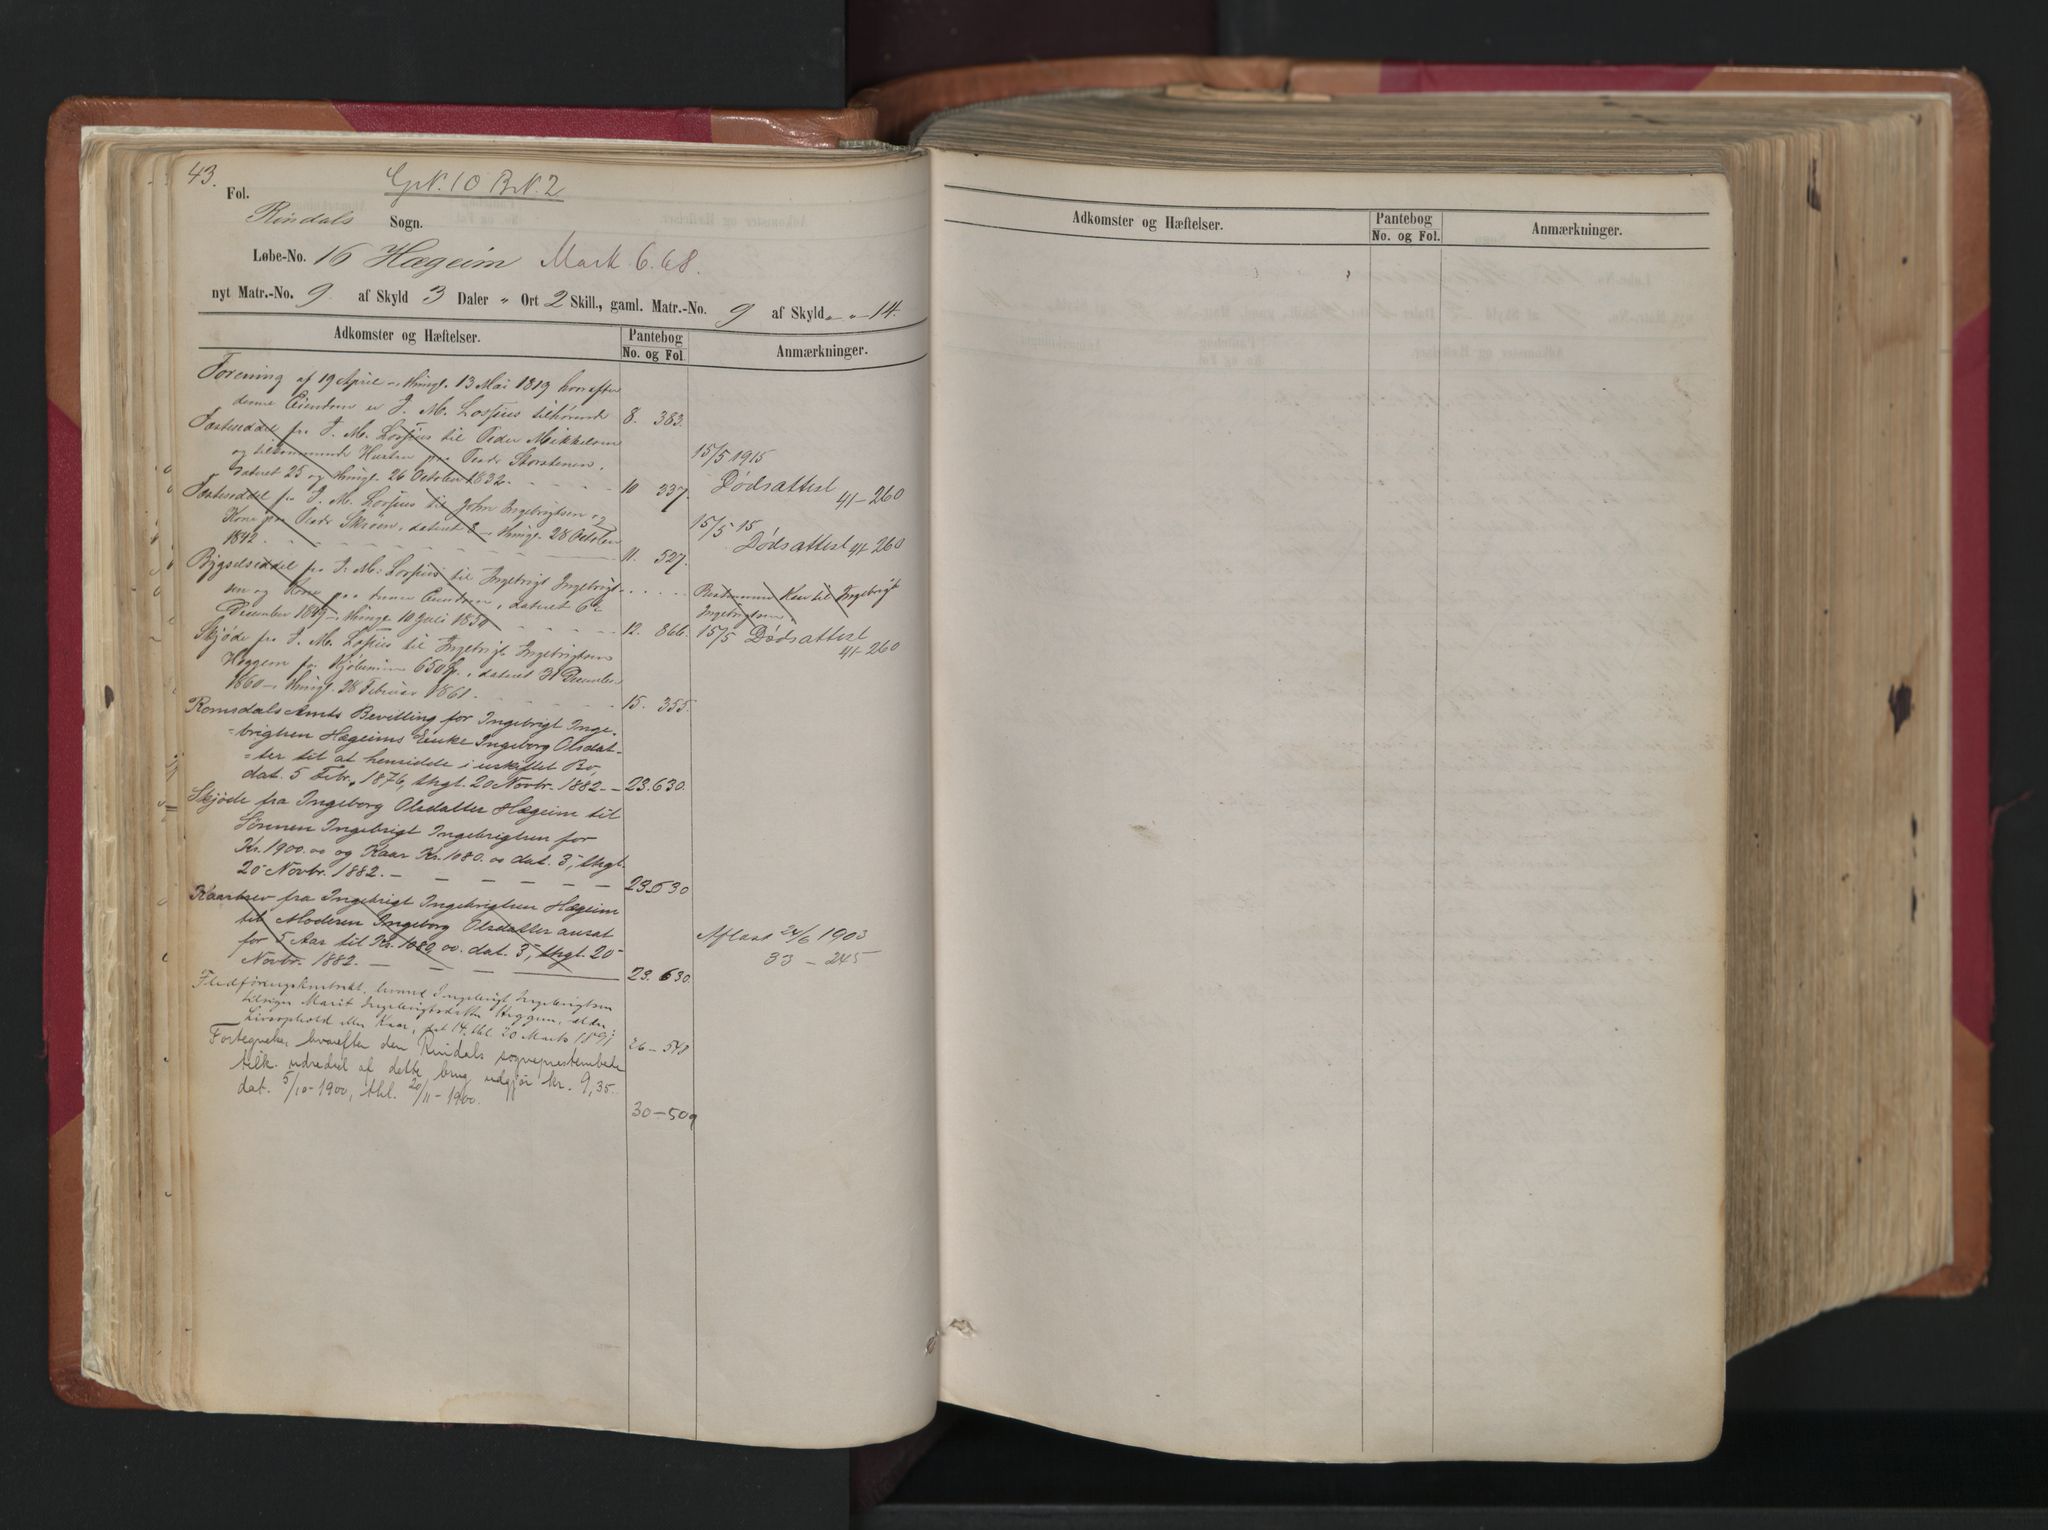 43.
Fol.
G.N. 10 B.N. 2
Rindals Sogn.
Løbe-No. 16 Hægeim Mark 6.68.
nyt Matr.-No. 9 af Skyld 3 Daler " Ort 2 Skill., gaml. Matr.-No. 9 af Skyld " - " - 14.
Adkomster og Hæftelser. Pantebog No. og Fol. Anmærkninger.
Forening af 19 April - thingl. 13 Mai 1819 hvorefter
denne Eiendom er J. M. Lossius tilhørende 8. 383.
Fæsteseddel fra J. M. Lossius til Peder Mikkelsen
og tilkommende Hustru paa
dateret 25 og thingl. 26 October 1832. - - - - 10 337.
15/5 1915
Dødsattest
41-260
Fæsteseddel fra J. M. Lossius til John Ingebrigtsen og
Kone paa Skrøen, dateret thingl. 28 October
1842. - - - - 11. 527.
15/5 15
Dødsattest 41-260
Bygselseddel fra J. M. Lossius til Ingebrigt Ingebrigt-
sen og Kone paa denne Eiendom, dateret 6te
December 1849 - thingl. 10 Juli 1850 - - - - 12. 866.
til Ingebrigt
Ingebrigtsen.
15/5 Dødsattest
41-260
Skjøde fra J. M. Lossius til Ingebrigt Ingebrigtsen
Heggem for Kjøbesum 650 Sp., dateret 31 December
1860 -, thingl. 28 Februar 1861. - - - - 15. 355.
Romsdals Amts Bevilling for Ingebrigt Inge-
-brigtsen Hægeims Enke Ingeborg Olsdat-
-ter til at hensidde i uskiftet Bo,
dat. 5 Febr. 1876, thgl. 20 Novbr. 1882. - - 23. 630.
Skjøde fra Ingeborg Olsdatter Hægeim til
Sønnen Ingebrigt Ingebrigtsen for
Kr. 1900.00 og Kaar Kr. 1080.00 dat. 3, thgl.
20 Novbr. 1882. - - - - - - 23. 630
Kaarbrev fra Ingebrigt Ingebrigtsen Hægeim
til Moderen Ingeborg Olsdatter ansat
for 5 Aar til Kr. 1080.00. dat. 3, thgl. 20
Novbr. 1882. - - - - 23. 630.
Aflæst 24/6 1903
33 - 245
Fledføringskontrakt, hvorved Ingebrigt Ingebrigtsen
tilsiger Marit Ingebrigtsdatter Heggem,
Livsophold eller Kaar, dat 14. thl. 20 Marts 1891 26 - 548
Fortegnelse, hvorefter den Rindals sogneprestembede
tilk. udredsel af dette brug udgjør kr. 9,35.
dat. 5/10 - 1900, thl. 20/11 - 1900. 30 - 509
Adkomster og Hæftelser. Pantebog No. og Fol. Anmærkninger.